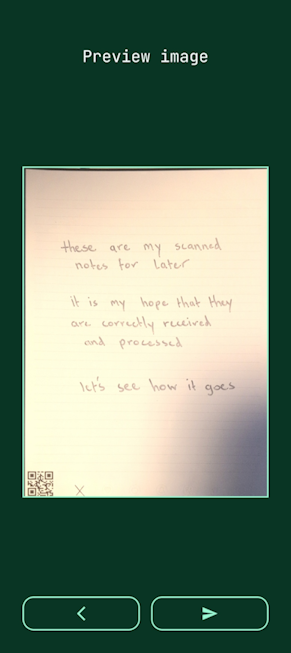 Preview image
these are my scanned
notes for later
it is my hope that they
are correctly received
and processed
let's see how it goes
X